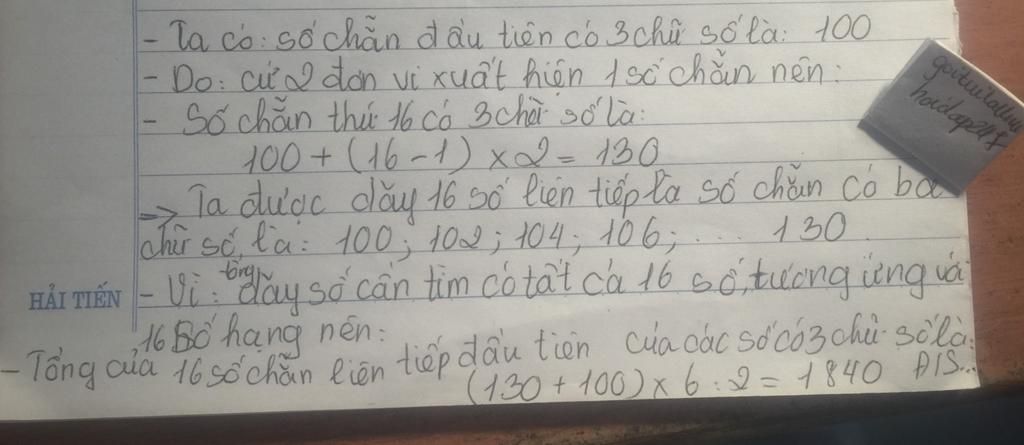 - Ta có: số chẵn đầu tiên có 3 chữ số là: 100
- Do: cứ 2 đơn vị xuất hiện 1 số chẵn nên:
- Số chẵn thứ 16 có 3 chữ số là:
100 + (16 - 1) × 2 = 130
→ Ta được dãy 16 số liên tiếp là số chẵn có ba
chữ số, là: 100; 102; 104; 106; .... 130
- Vì: tổng dãy số cần tìm có tất cả 16 số, tương ứng với
HẢI TIẾN
16 số hạng nên:
- Tổng của 16 số chẵn liên tiếp đầu tiên của các số có 3 chữ số là:
(130 + 100) × 6 : 2 = 1840 Đ/S...
hoidap247